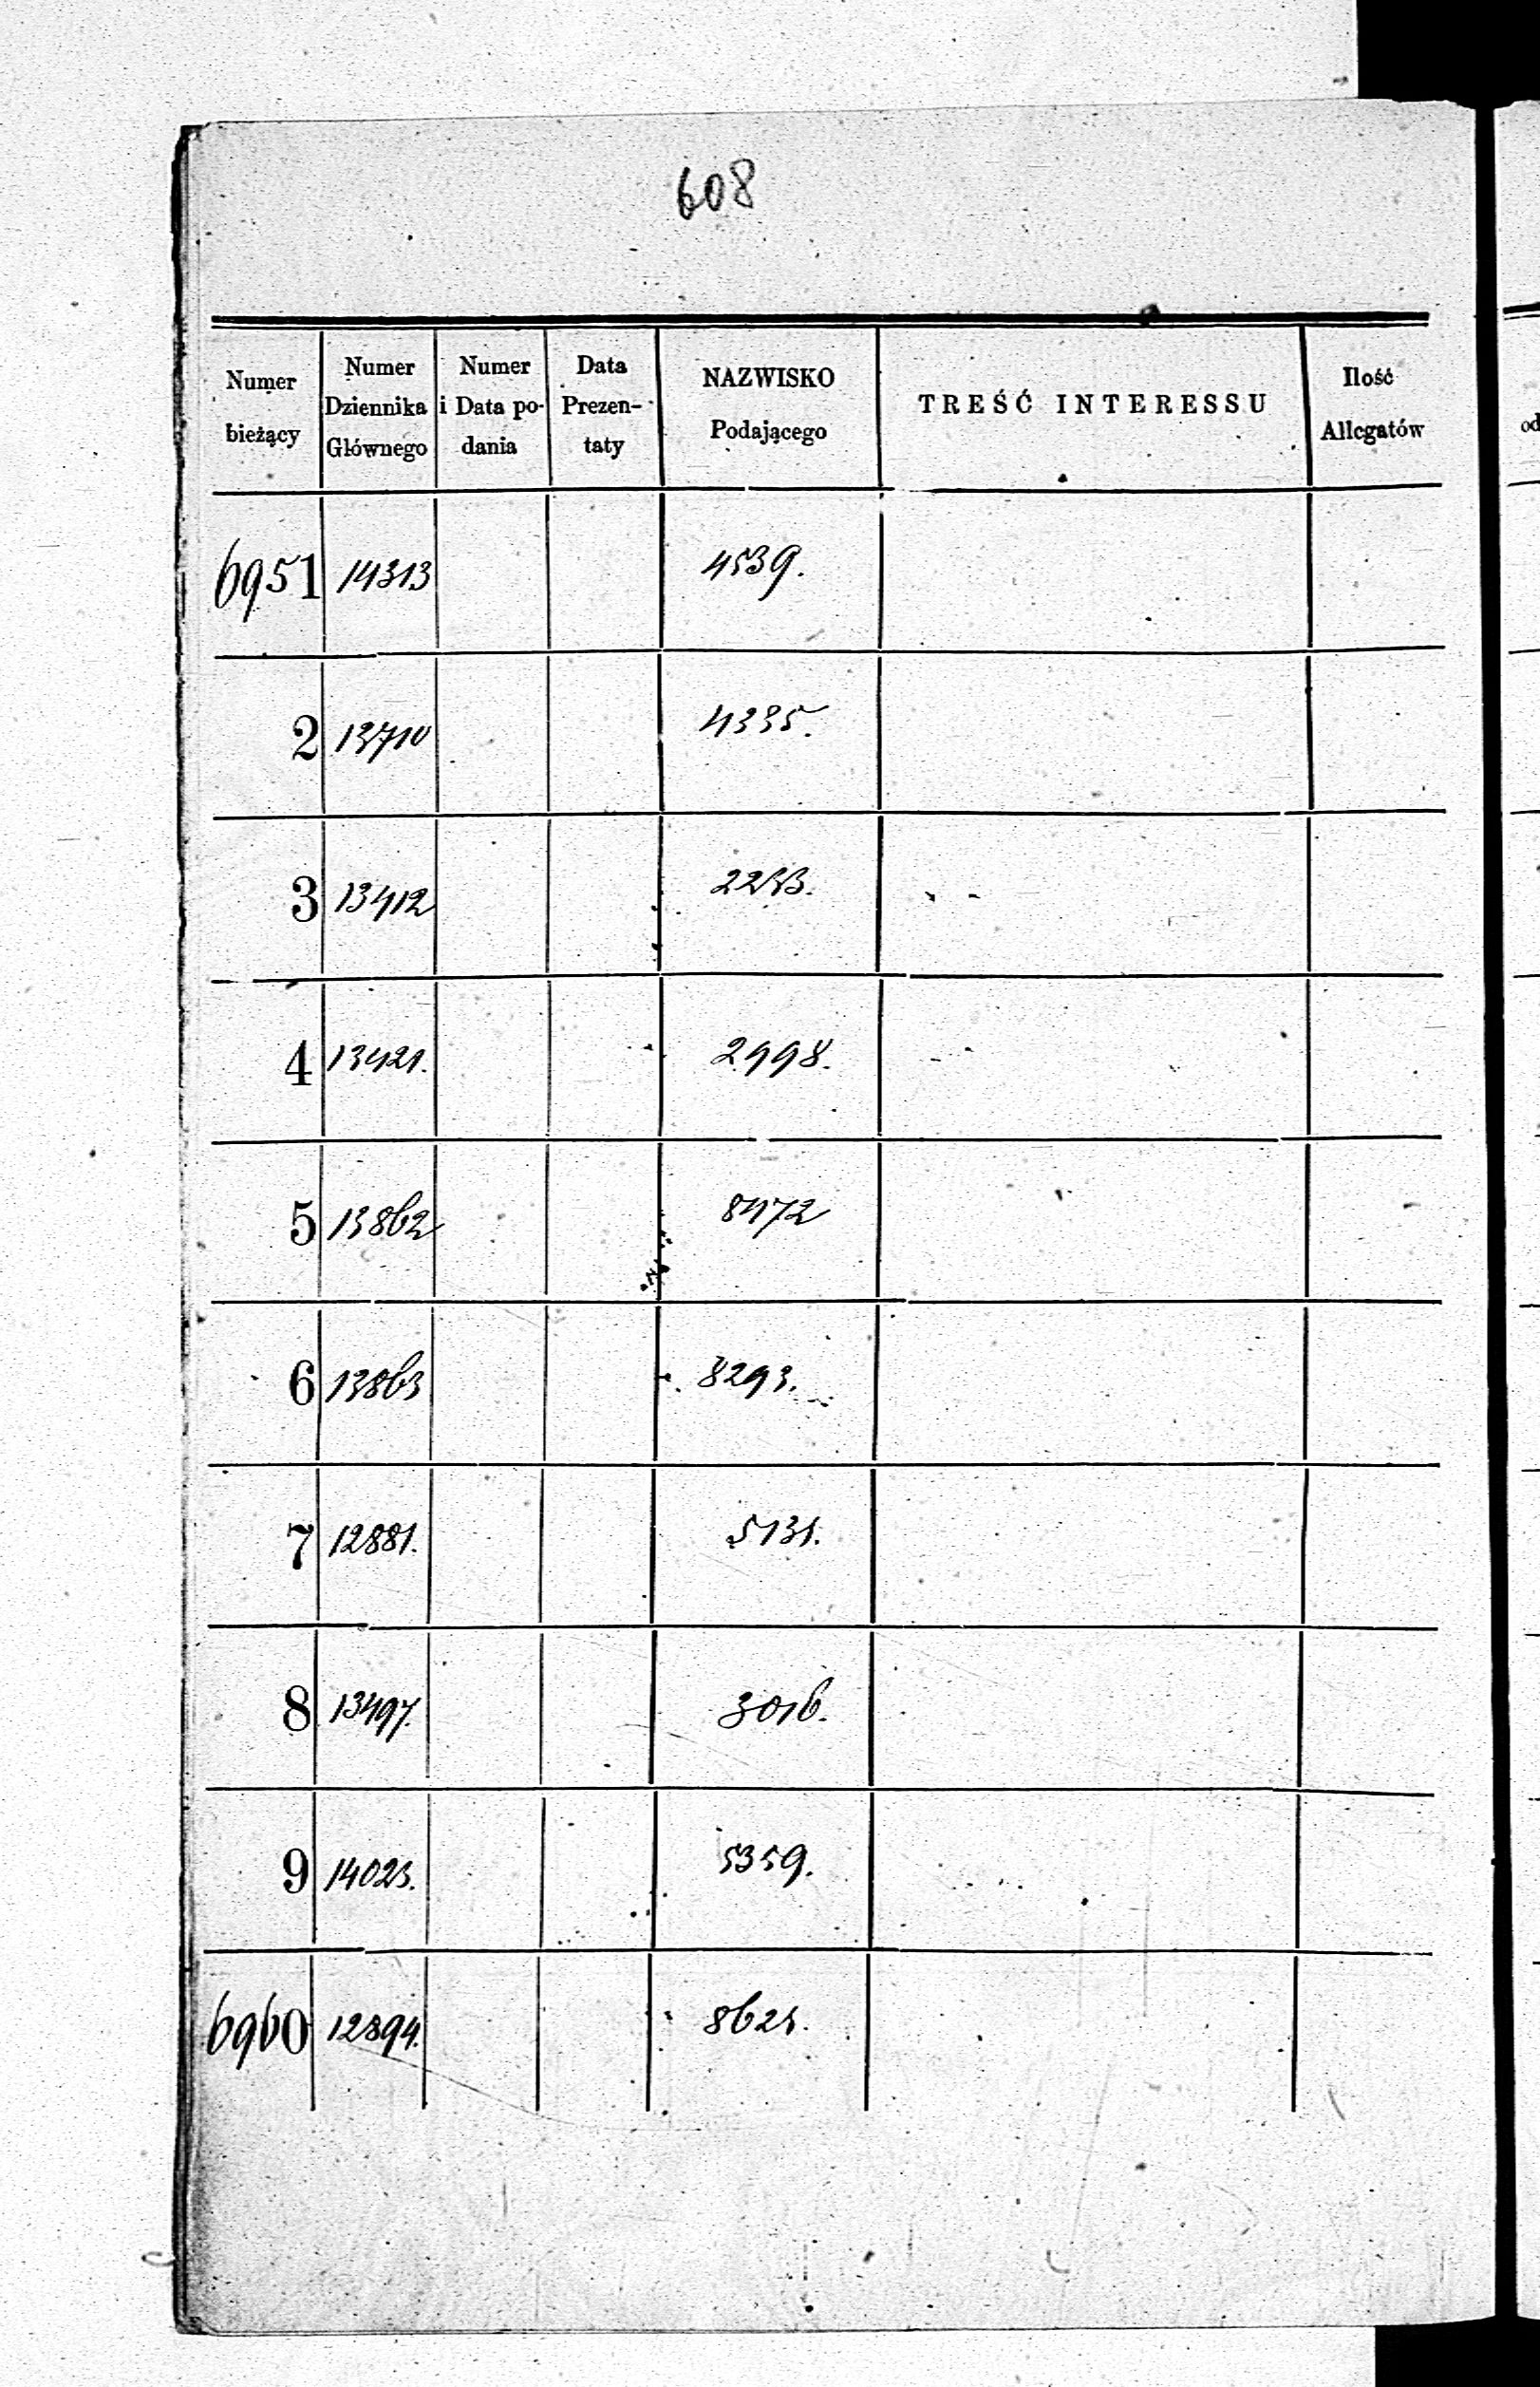 608
Numer bieżący | Numer Dziennika Głównego | Numer i Data podania | Data Prezentaty | NAZWISKO Podającego | TREŚĆ INTERESSU | Ilość Allegatów
6951 14313 4539.
2 13710 4335.
3 13412
4 13421. 2998.
5 13862 8472
6 13863 8293.
7 12881. 5131.
8 13497. 3016.
9 14023. 5359.
6960 12894.
od